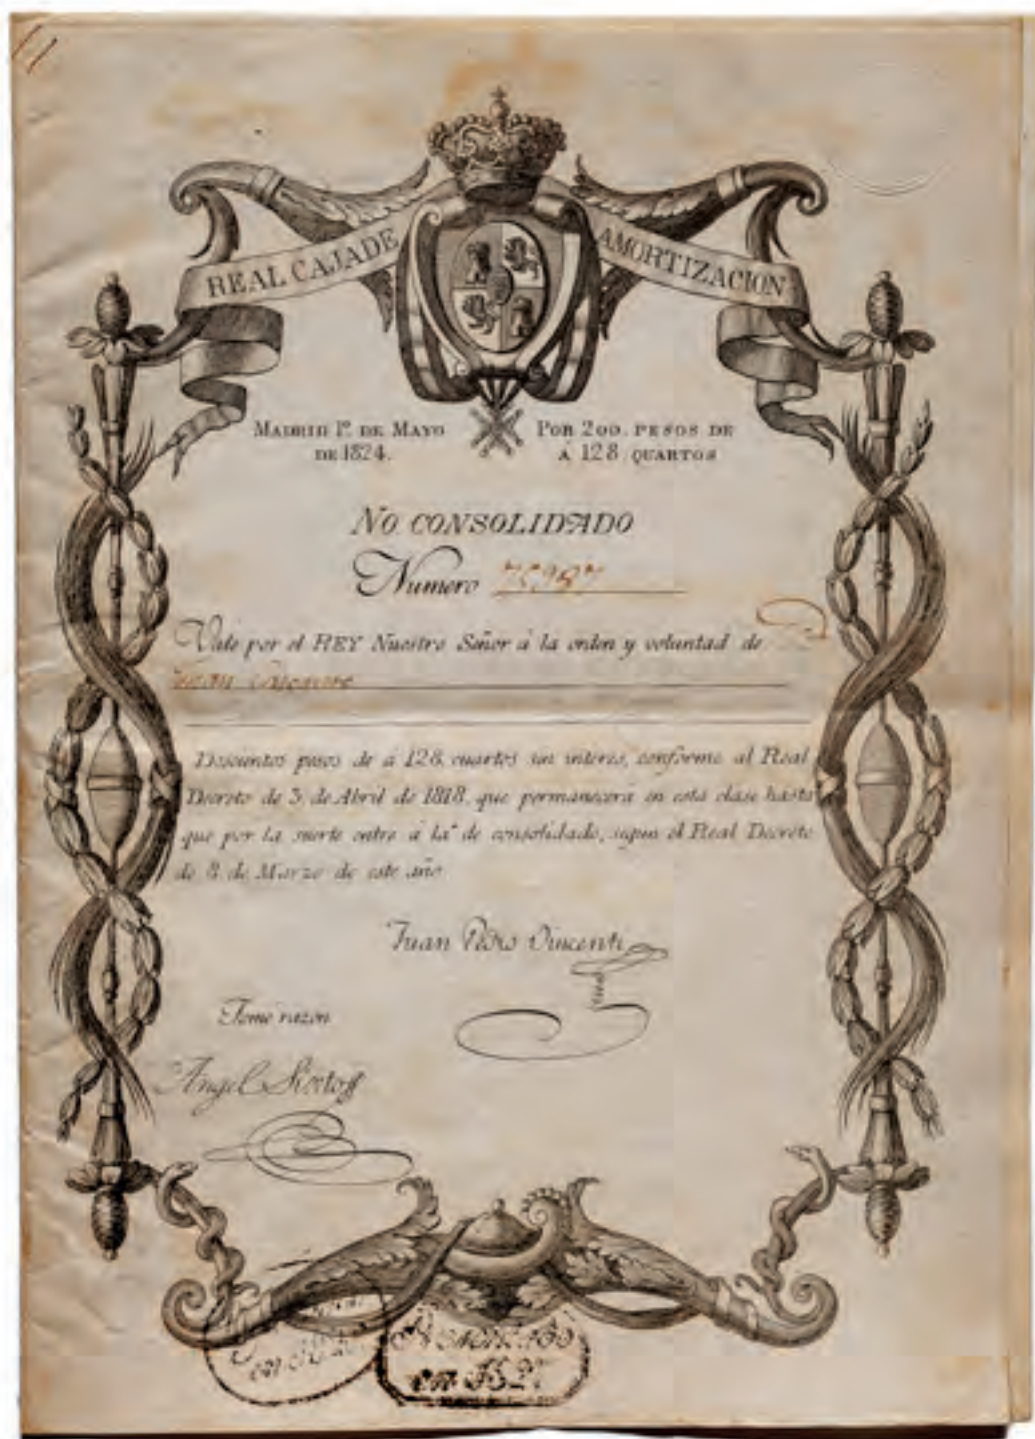 REAL CAJA DE AMORTIZACION
MADRID 1º. DE MAYO
DE 1824.
POR 200. PESOS DE
Á 128 QUARTOS
NO CONSOLIDADO
Numero
Vale por el REY Nuestro Señor á la orden y voluntad de
Doscientos pesos de á 128 cuartos sin interes, conforme al Real
Decreto de 3 de Abril de 1818, que permanecerá en esta clase hasta
que por la suerte entre á la de consolidado, segun el Real Decreto
de 8 de Marzo de este año
Juan Pedro Vincenti
Tome razon
Angel